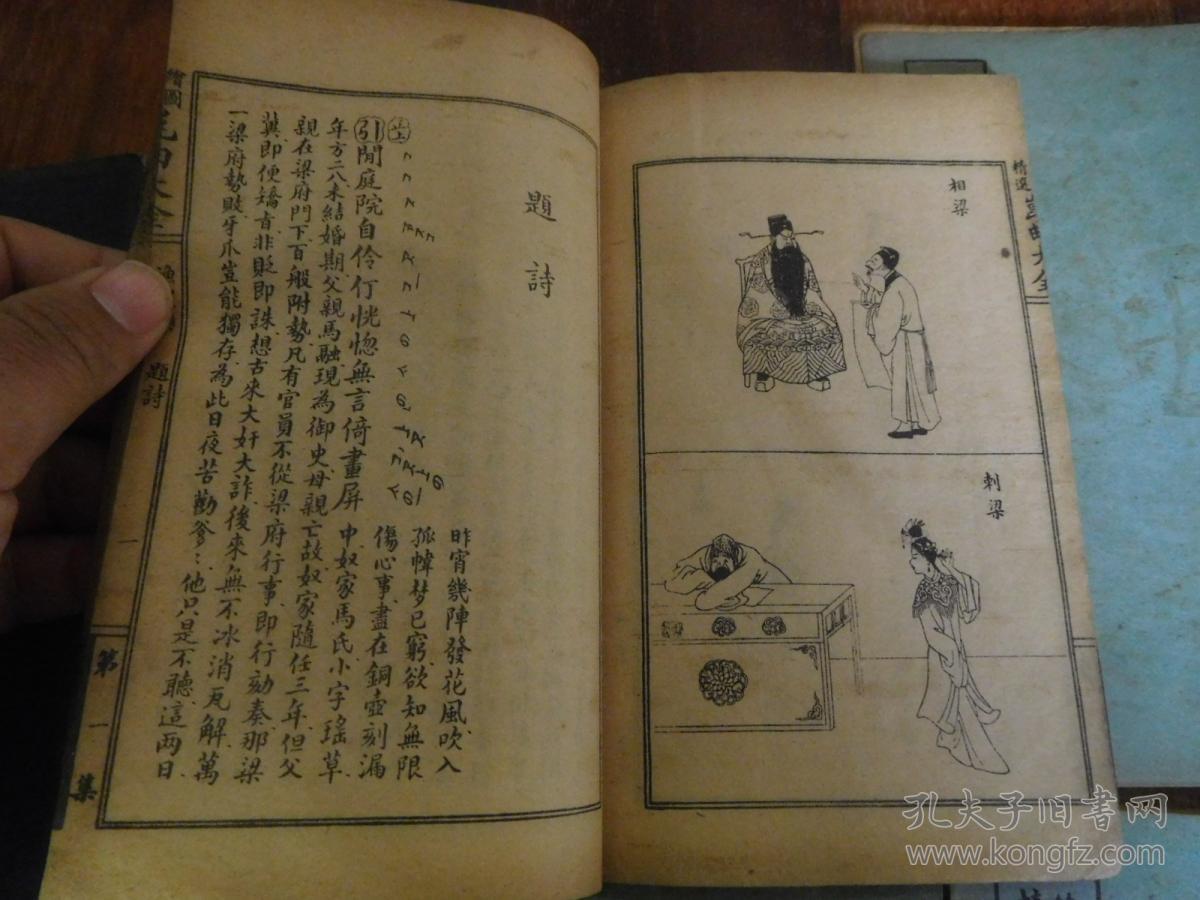 精選崑曲大全
相梁
刺梁
題詩
引閒庭院自伶仃恍惚無言倚畫屏
昨宵幾陣發花風吹入
孤幃梦已窮欲知無限
傷心事盡在銅壺刻漏
中奴家馬氏小字瑤草
年方二八未結婚期父親馬融現為御史母親亡故奴家隨任三年但父
親在梁府門下百般附勢凡有官員不從梁府行事即行劾奏那梁
兾即便矯旨非貶即誅想古來大奸大詐後來無不冰消瓦解萬
一梁府勢敗牙爪豈能獨存為此日夜苦勸爹〻他只是不聽這兩日
繪圖崑曲大全
題詩
一
第一集
孔夫子旧书网
www.kongfz.com